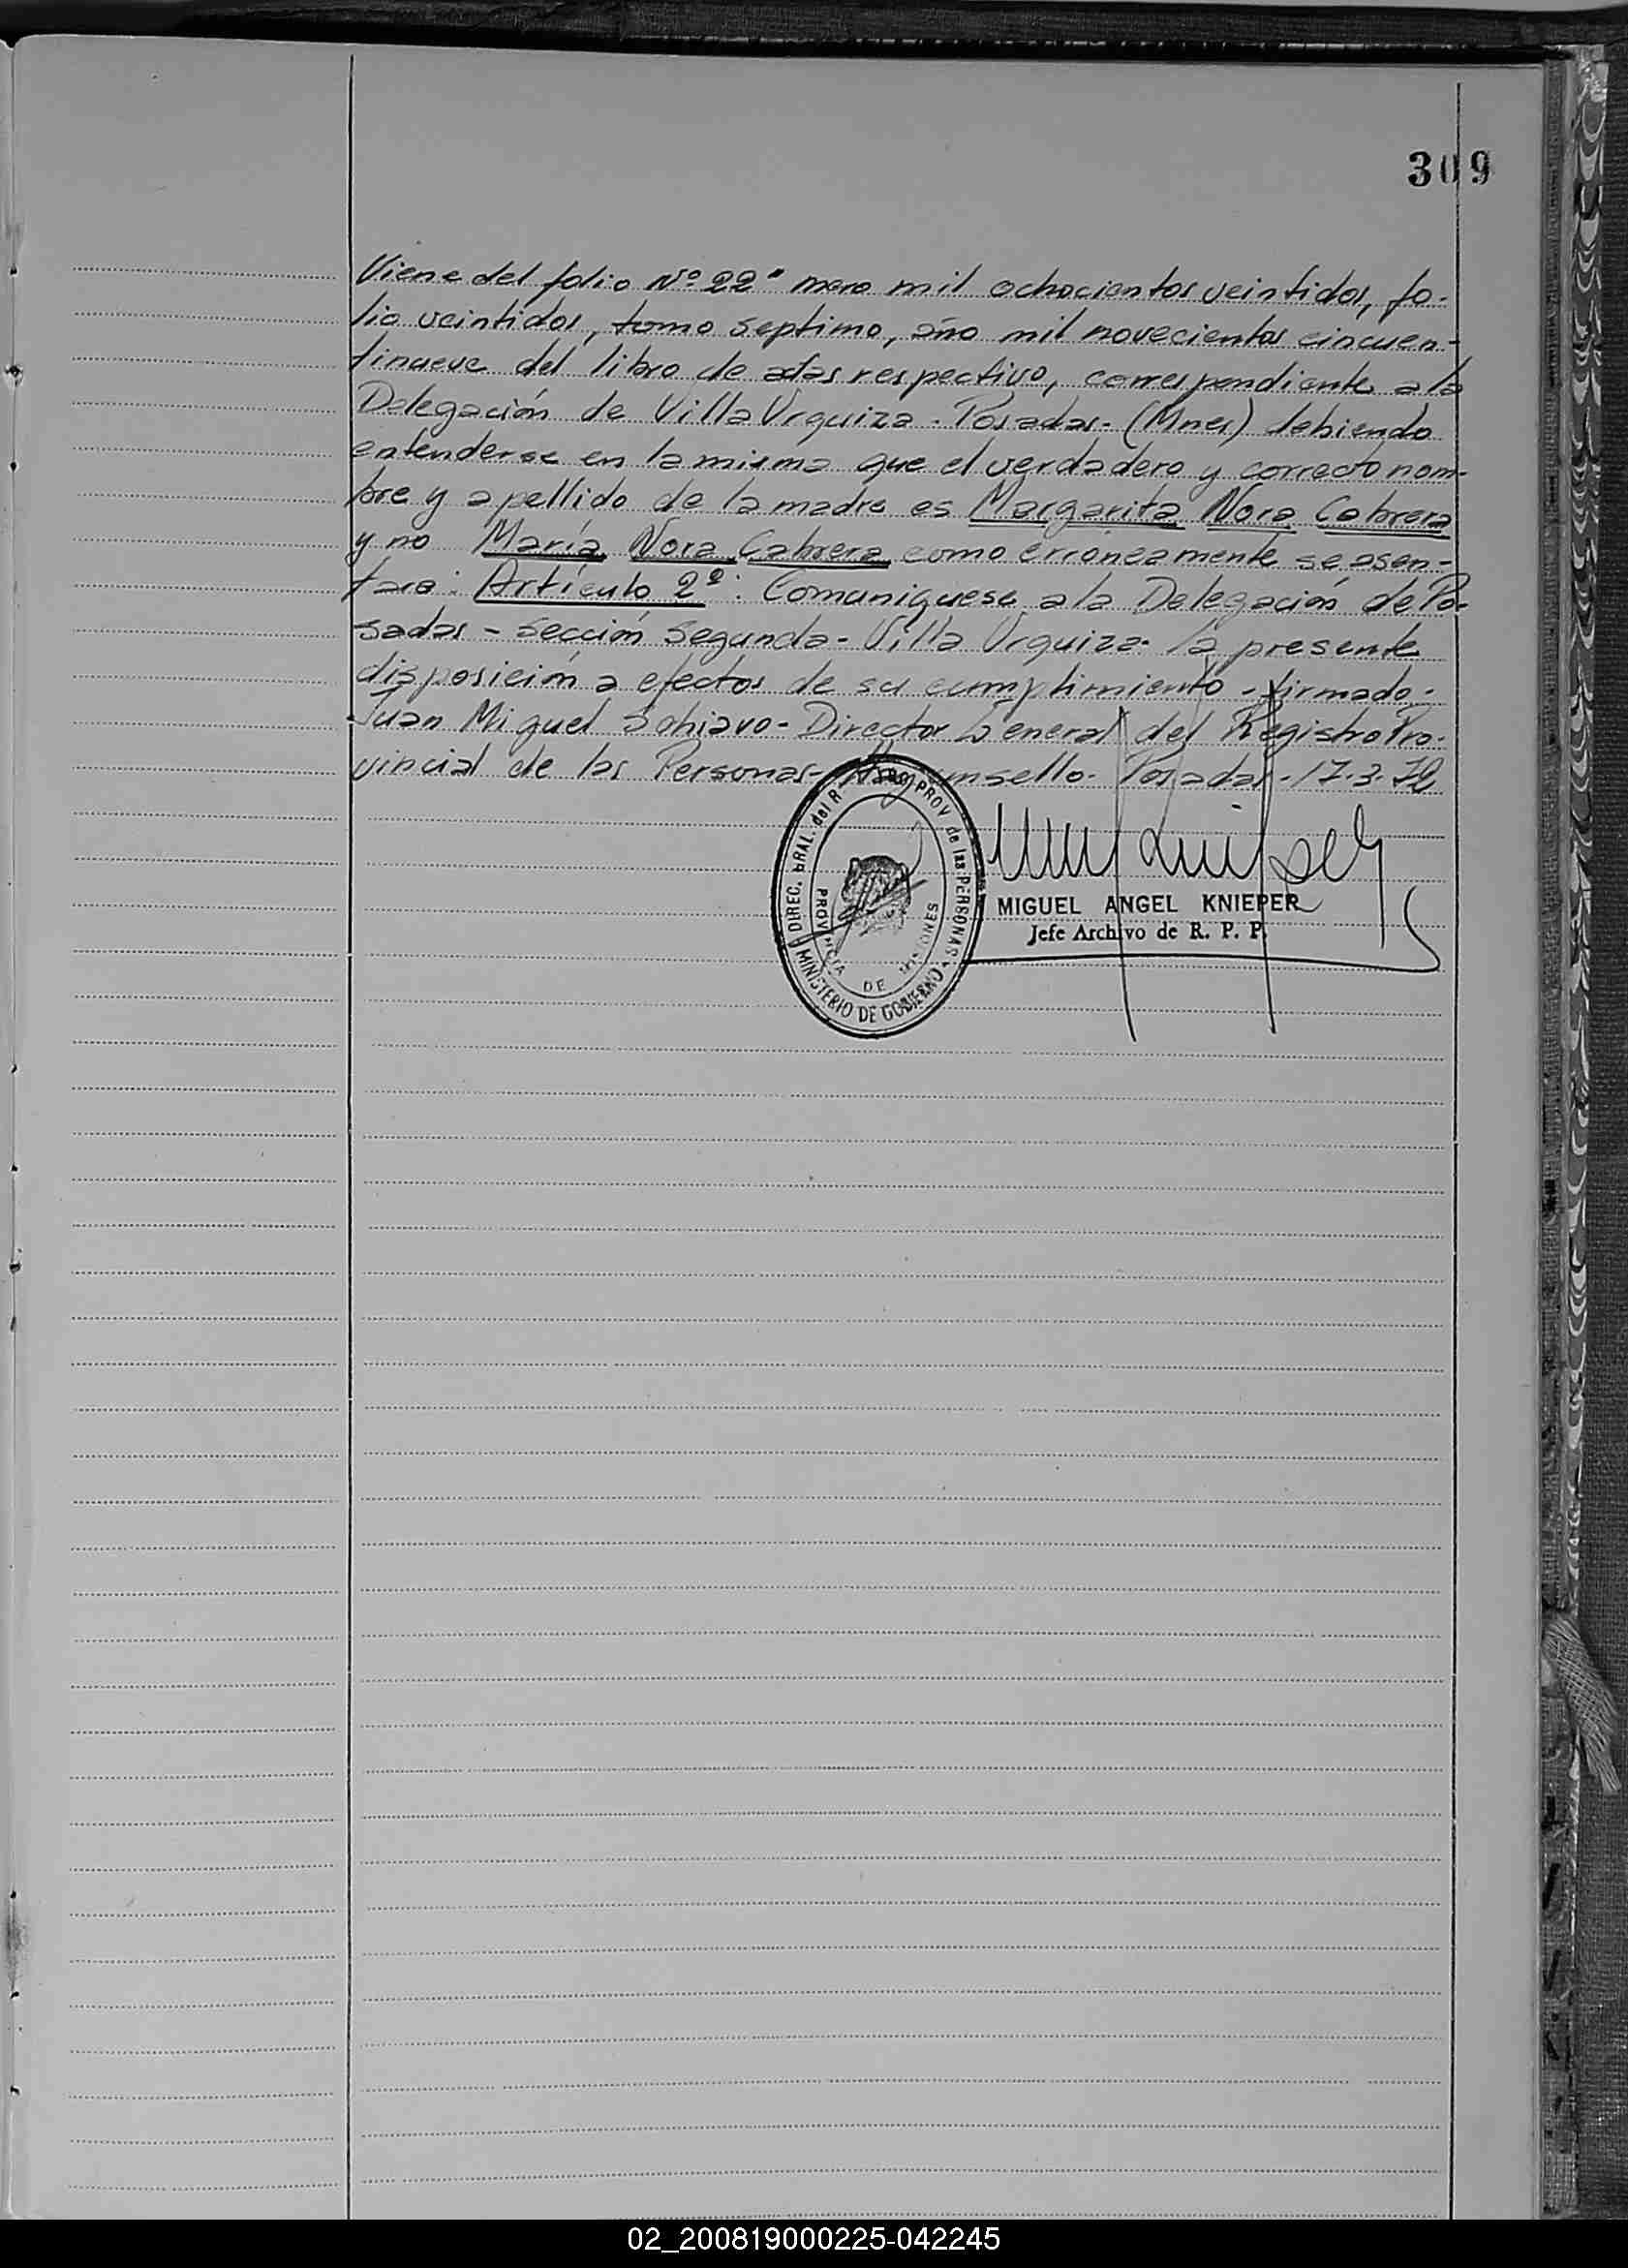 309
Viene del folio Nº 22" mero mil ochocientos veintidos, fo-
lio veintidos, tomo septimo, año mil novecientos cincuen-
tinueve del libro de actas respectivo, correspondiente a la
Delegación de Villa Urquiza - Posadas - (Mnes) debiendo
entenderse en la misma que el verdadero y correcto nom-
bre y apellido de la madre es Margarita Nora Cabrera
y no María Nora Cabrera como erróneamente se asen-
tara: Artículo 2º: Comuniquese a la Delegación de Po-
sadas - Sección Segunda - Villa Urquiza - la presente
disposición a efectos de su cumplimiento - firmado -
Juan Miguel Schiavo - Director General del Registro Pro-
vincial de las Personas - Hay un sello - Posadas - 17.3.72
DIREC. GRAL. del R PROV de las PERSONAS
PROVINCIA DE MISIONES
MINISTERIO DE GOBIERNO
MIGUEL ANGEL KNIEPER
Jefe Archivo de R. P. P.
02_200819000225-042245